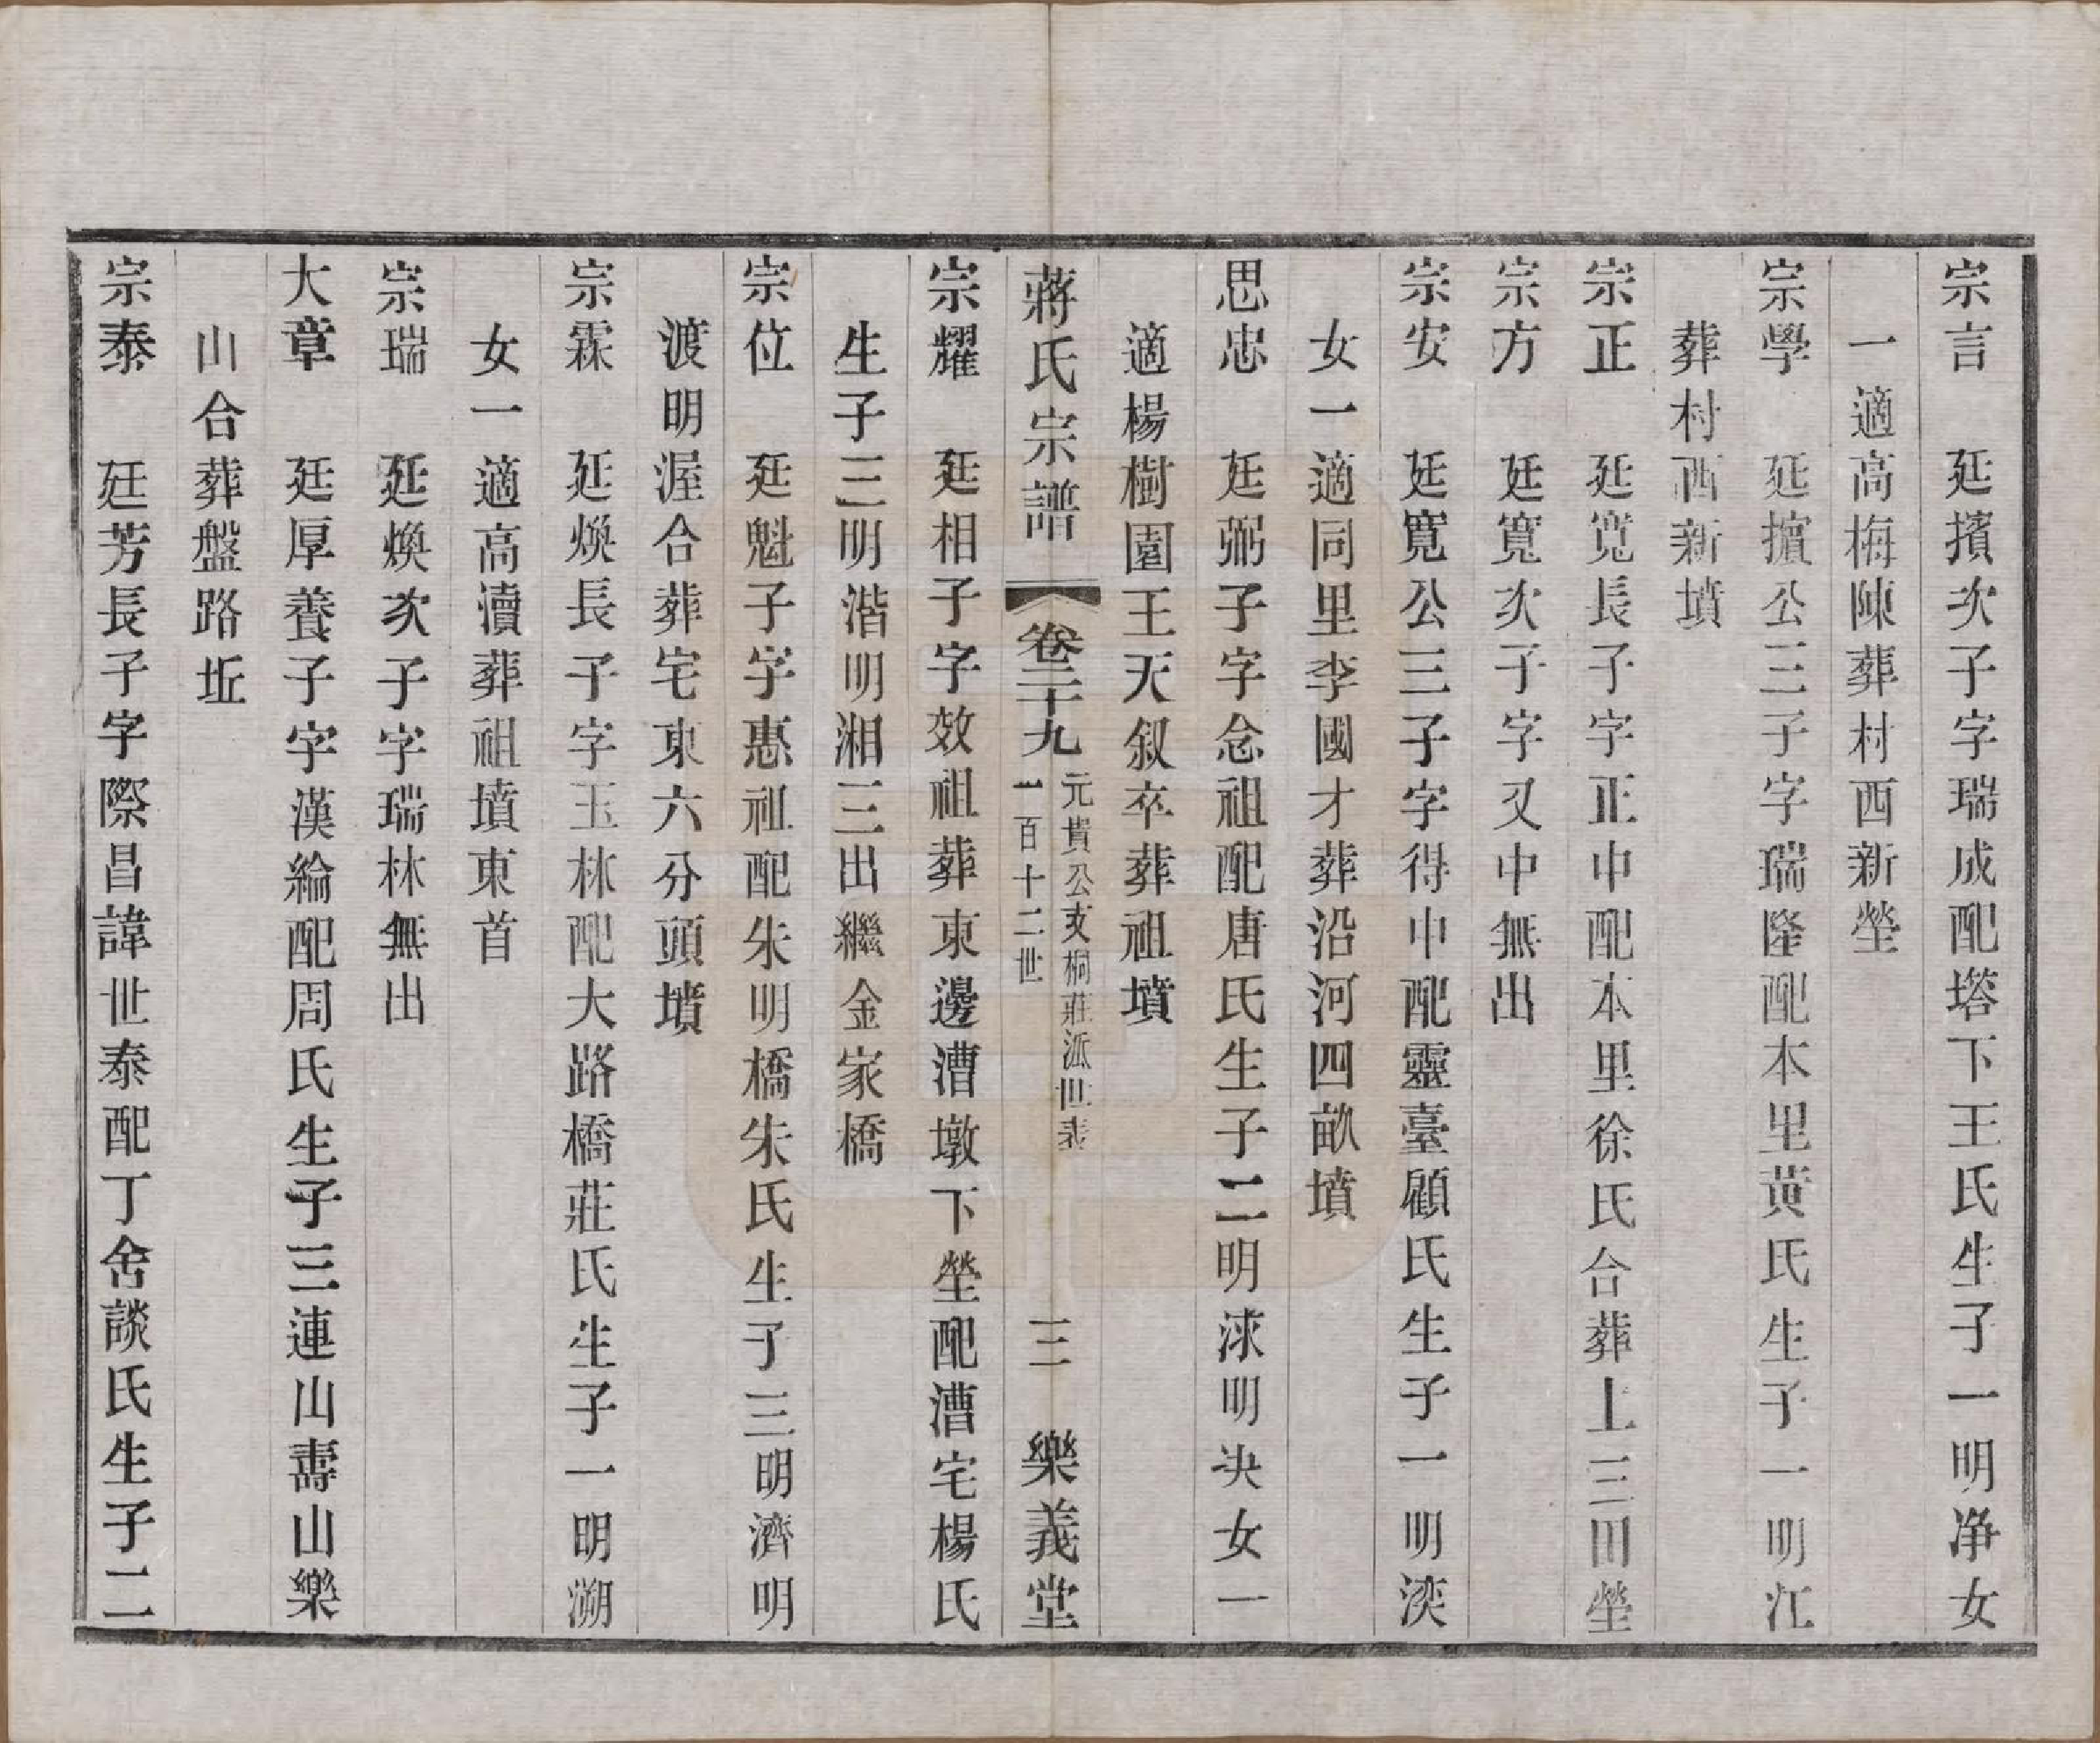 宗言 延擯次子字瑞成配塔下王氏生子一明净女
一適高梅陳葬村西新塋
宗學 延擯公三子字瑞隆配本里黄氏生子一明江
葬村西新墳
宗正 廷寬長子字正中配本里徐氏合葬上三田塋
宗方 廷寬次子字又中無出
宗安 廷寬公三子字得中配靈臺顧氏生子一明湙
女一適同里李國才葬沿河四畝墳
思忠 廷弼子字念祖配唐氏生子二明浗明決女一
適楊樹園王天叙卒葬祖墳
蔣氏宗譜 卷二十九 元貴公支桐莊派世表 一百十二世 三 樂義堂
宗耀 廷相子字效祖葬東邊漕墩下塋配漕宅楊氏
生子三明湝明湘三出繼金家橋
宗位 廷魁子字惠祖配朱明橋朱氏生子三明濟明
渡明渥合葬宅東六分頭墳
宗霖 延煥長子字玉林配大路橋莊氏生子一明溯
女一適高瀆葬祖墳東首
宗瑞 延煥次子字瑞林無出
大章 廷厚養子字漢綸配周氏生子三連山壽山樂
山合葬盤路坵
宗泰 廷芳長子字際昌諱世泰配丁舍談氏生子二